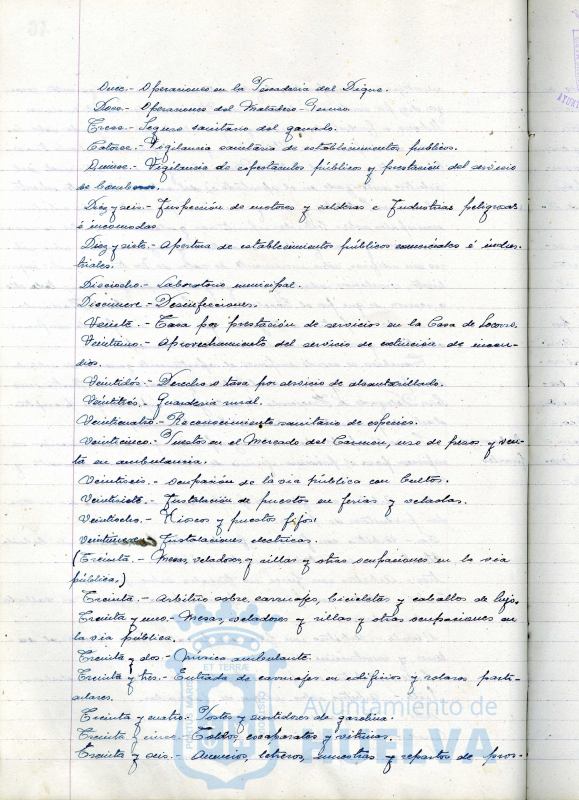 Once.- Operaciones en la Pescaderia del Dique.
Doce.- Operaciones del Matadero
Trece.- Seguro sanitario del ganado.
Catorce.- Vigilancia sanitaria de establecimientos publicos.
Quince.- Vigilancia de espectáculos públicos y prestación del servicio
de bomberos.
Diez y seis.- Inspección de motores y calderas e Industrias peligrosas
é incomodas
Diez y siete.- Apertura de establecimientos públicos comerciales é indus-
triales.
Dieciocho.- Laboratorio municipal.
Diecinueve.- Desinfecciones.
Veinte.- Tasa por prestación de servicios en la Casa de Socorro.
Veintiuno.- Aprovechamiento del servicio de extinción de incen-
dios.
Veintidós.- Derecho o tasa por servicio de alcantarillado.
Veintitrés.- Guardería rural.
Veinticuatro.- Reconocimiento sanitario de especies.
Veinticinco.- Puestos en el Mercado del Carmen, uso de pesas y ven-
ta en ambulancia.
Veintiseis.- Ocupación de la via pública con bultos.
Veintisiete.- Instalación de puestos en ferias y veladas.
Veintiocho.- Kioscos y puestos fijos.
Veintinueve Instalaciones electricas.
(Treinta.- Mesas, veladores y sillas y otras ocupaciones en la via
pública.)
Treinta.- Arbitrio sobre carruajes, bicicletas y caballos de lujo.
Treinta y uno.- Mesas, veladores y sillas y otras ocupaciones en
la via pública.
Treinta y dos.- Música ambulante.
Treinta y tres.- Entrada de carruajes en edificios y solares parti-
culares.
Treinta y cuatro.- Postes y surtidores de gasolina.
Treinta y cinco.- Toldos, escaparates y vitrinas.
Treinta y seis.- Anuncios, letreros, muestras y repartos de pros-
Ayuntamiento de
HUELVA